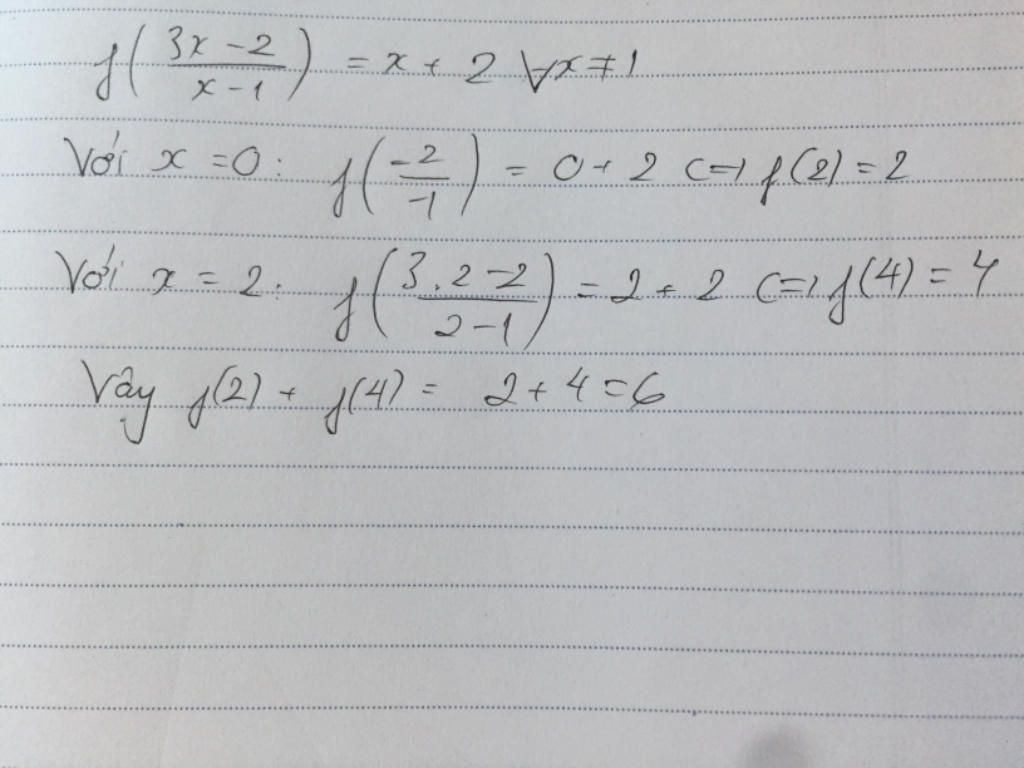 f((3x-2)/(x-1)) = x + 2 ∀x ≠ 1
Với x = 0: f((-2)/(-1)) = 0 + 2 <=> f(2) = 2
Với x = 2: f((3.2-2)/(2-1)) = 2 + 2 <=> f(4) = 4
Vậy f(2) + f(4) = 2 + 4 = 6